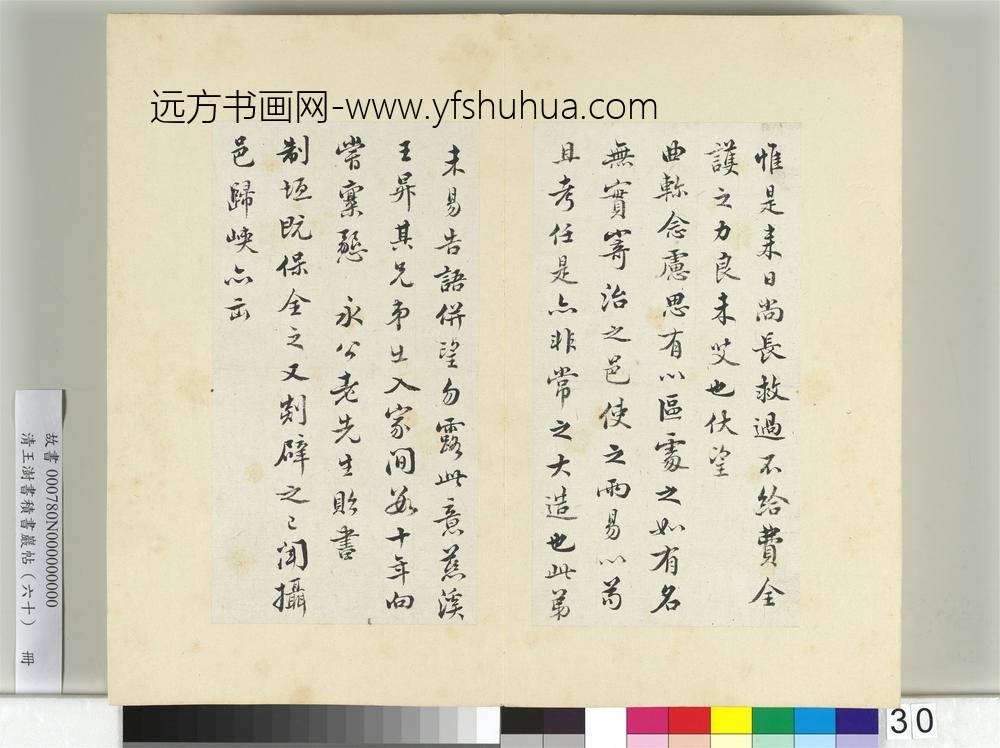 远方书画网-www.yfshuhua.com
惟是来日尚長救過不給費全
護之力良未艾也伏望
曲軫念慮思有以區處之如有名
無實寄治之邑使之兩易以苟
且考任是亦非常之大造也此第
未易告語併望勿露此意慈溪
王昇其兄弟出入家间數十年向
嘗稟懇 永公老先生貽書
制垣既保全之又剡辟之已闻攝
邑歸峡亦
故書 000780N000000000
清王澍書積書巖帖（六十） 冊
30